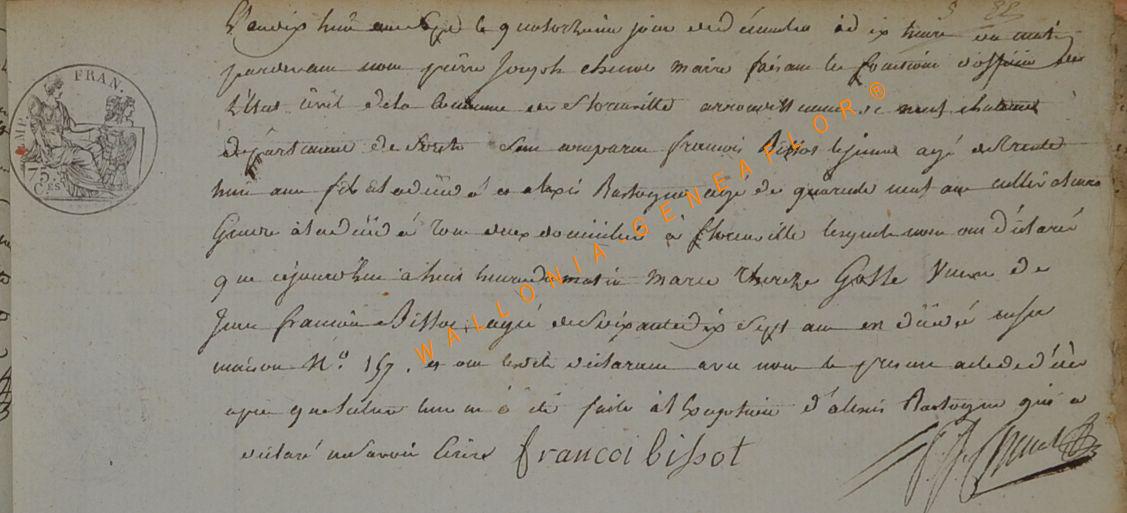 L'an dix huit cent sept le quatorzieme jour de decembre à dix heures du matin
pardevant nous pierre Joseph maire faisant les fonctions d'officier de
l'Etat civil de la Commune de florenville arrondissement de neufchateau
département de forêts sont comparu francois Bissot le jeune agé de trente
huit ans fils de la décédé et alexis Bastogne agé de quarante neuf ans cultivateur
Gendre de la décédé tous deux domicilié à florenville lesquels nous ont déclaré
que cejourdhui à huit heures du matin marie therese Gosse Veuve de
Jean francois Bissot, agée de soixante dix sept ans est décédé en sa
maison N.º 157. et ont lesdits déclarans avec nous le present acte de décès
après que lecture leur en a été faite à l'exception d'alexis Bastogne qui a
déclaré ne savoir écrire francoi bissot
FRAN.
EMP.
75.
C.ES
WALLONIA GENEAFLOR ®